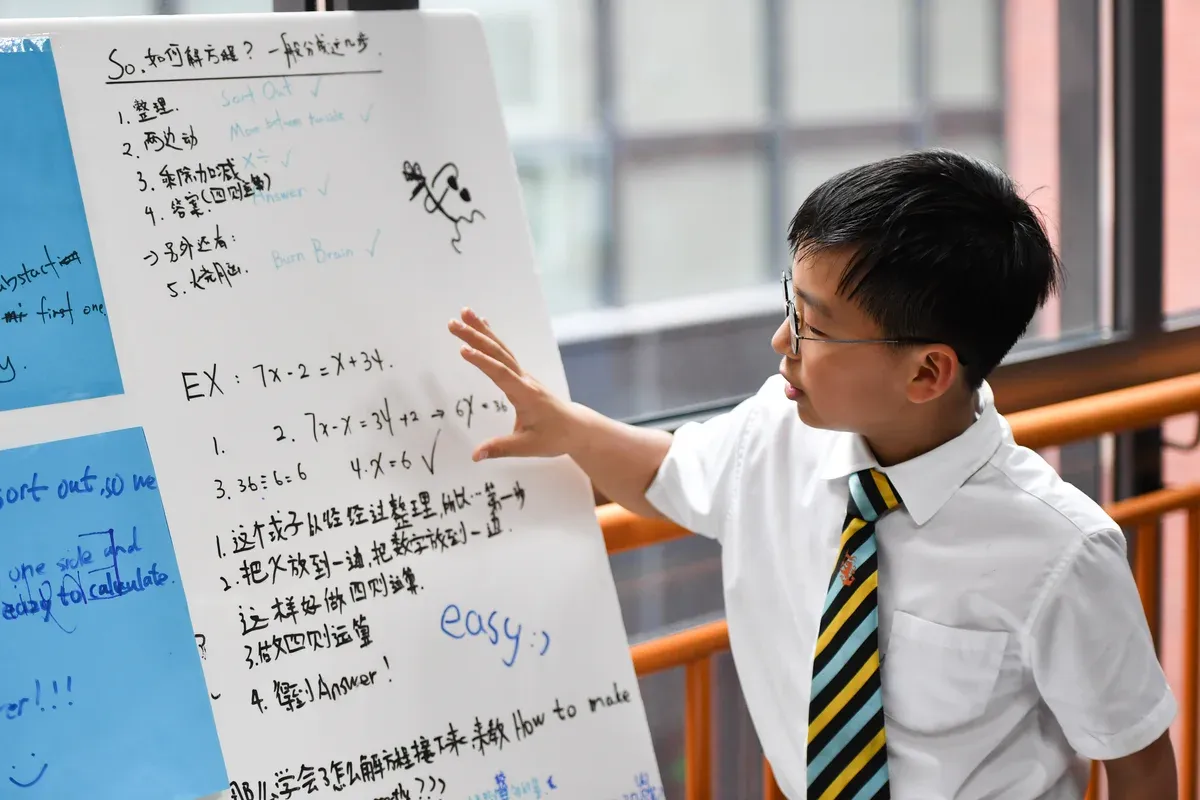 So, 如何解方程? 一般分成这几步.
1. 整理. Sort Out ✓
2. 两边动 ✓
3. 乘除加减 x ÷ ✓
4. 答案. (四则运算) Answer ✓
→ 另外还有:
5. 火烧脑. Burn Brain ✓
EX: 7x-2=x+34.
1. 2. 7x-x=34+2 → 6x=36
3. 36÷6=6 4. x=6 ✓
1. 这个式子以经经过整理, 所以…第一步
2. 把X放到一边, 把数字放到一边.
这样好做四则运算.
3. 做四则运算
4. 得到Answer!
easy :)
学会了怎么解方程接下来, 来教How to make
???
first one.
y.
sort out, so we
one side and
easy to calculate.
er!!!